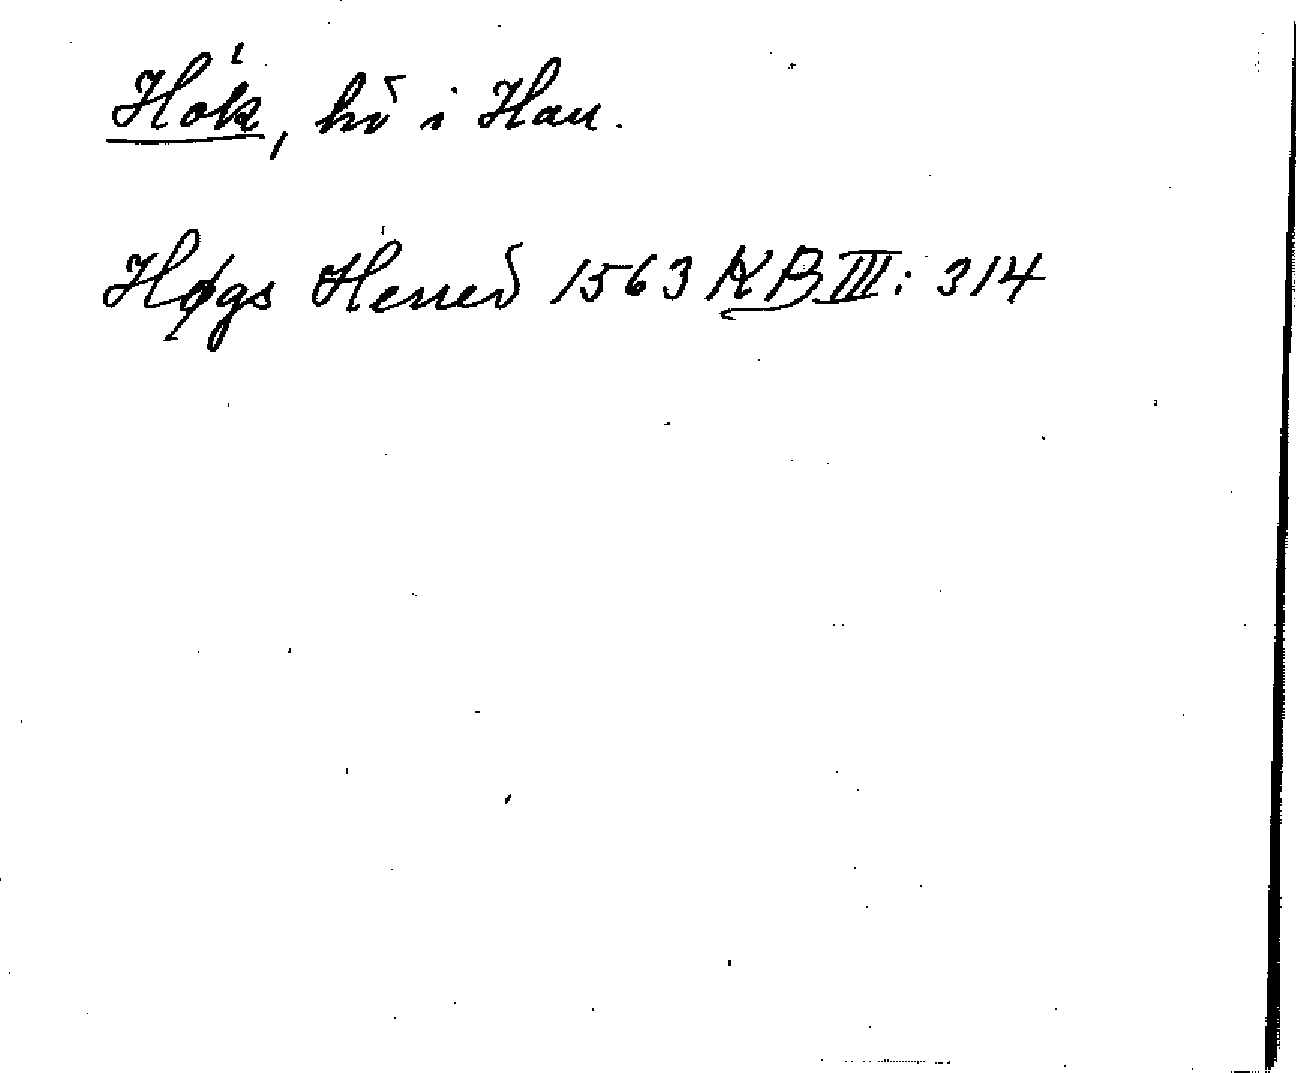 Hök, hd i Hau.
Høgs Herred 1563 KB III: 314